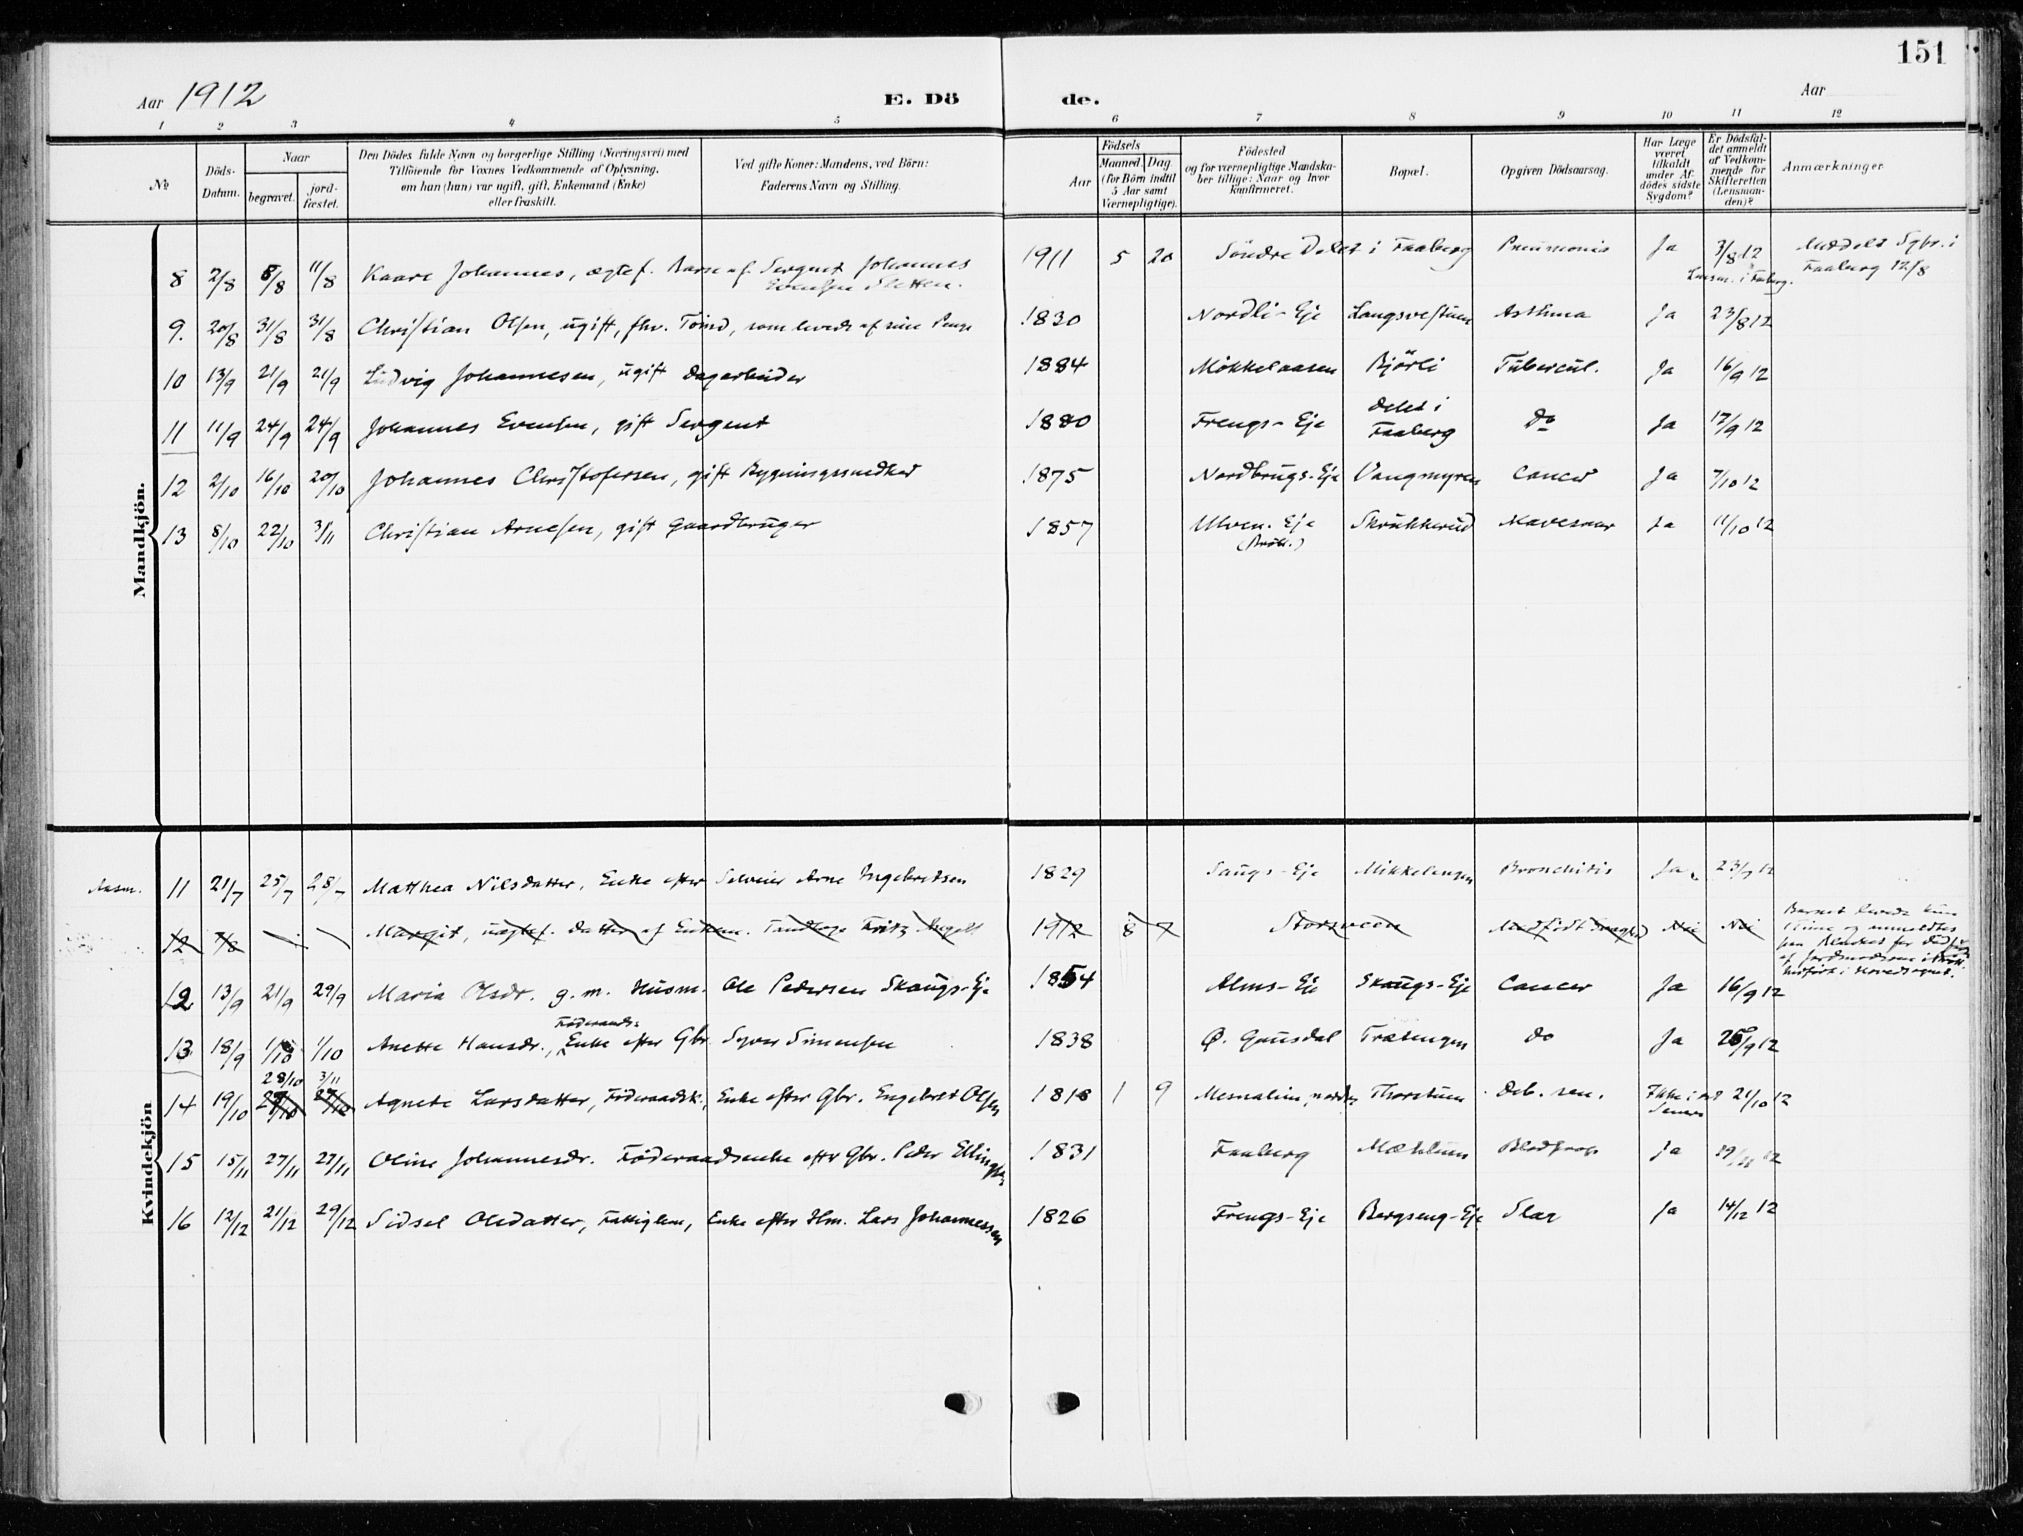 151
Aar 1912
E. Dö de.
Aar
1 2 3 4 5 6 7 8 9 10 11 12
№
Döds-Datum.
Naar
begravet.
jord-fæstet.
Den Dödes fulde Navn og borgerlige Stilling (Næringsvei) med
Tilföiende for Voxnes Vedkommende af Oplysning,
om han (hun) var ugift, gift, Enkemand (Enke)
eller fraskilt.
Ved gifte Koner: Mandens, ved Börn:
Faderens Navn og Stilling.
Aar
Födsels
Maaned. Dag.
(for Börn indtil
5 Aar samt
Værnepligtige).
Födested
og for værnepligtige Mandska-
ber tillige: Naar og hvor
konfirmeret.
Bopæl.
Opgiven Dödsaarsag.
Har Læge
været
tilkaldt
under Af-
dödes sidste
Sygdom?
Er Dödsfal-
det anmeldt
af Vedkom-
mende for
Skifteretten
(Lensman-
den)?
Anmærkninger
Mandkjön.
8 2/8 8/8 11/8 Kaare Johannes, ægtef. Barn af Sergent Johannes Evensen Sletten. 1911 5 20 Söndre Delet i Faaberg Pneumonia Ja 3/8 12 Lensm. i Faaberg. Meddelt Sgbr. i Faaberg 12/8
9. 20/8 31/8 31/8 Christian Olsen, ugift, fhv. , som levede af sine Penge 1830 Nordli-Eje Asthma Ja 23/8 12
10 13/9 21/9 21/9 Ludvig Johannesen, ugift Dagarbeider 1884 Mikkelaasen Björli Tubercul. Ja 16/9 12
11 11/9 24/9 24/9 Johannes Evensen, gift Sergent 1880 Frengs-Eje Delet i Faaberg Do Ja 17/9 12
12 2/10 16/10 20/10 Johannes Christofersen, gift Bygningssnedker 1875 Nordbrugs-Eje Vangmyren Cancer Ja 7/10 12
13 8/10 22/10 3/11 Christian Arnesen, gift Gaardbruger 1857 Ulven-Eje Skrukkerud Mavesaar Ja 11/10 12
Kvindekjön
11 21/7 25/7 28/7 Matthea Nilsdatter, Enke efter Selveier Arne Ingebretsen 1829 Saugs-Eje Mikkelengen Bronchitis Ja 23/7 12
12 7/8 Margit, uægtef. Datter af Tandlæge Fritz 1912 8 7 Storsveen Medfödt Svaghed Nei Nei Barnet levede kun
12 13/9 21/9 29/9 Maria Olsdr. g. m. Husm. Ole Pedersen Skaugs-Eje 1854 Alms-Eje Skaugs-Eje Cancer Ja 16/9 12
13 18/9 1/10 1/10 Anette Hansdr., Föderaads-Enke efter Gbr. Syver Simensen 1838 Ø. Gausdal Trætengen do Ja 25/9 12
14 19/10 28/10 3/11 Agnete Larsdatter, Föderaadsk., Enke efter Gbr. Engebret Olsen 1818 1 9 Mesnalien, nordre Thorstuen Deb. sen. Ikke i det Senere 21/10 12
15 15/11 27/11 27/11 Oline Johannesdr. Föderaadsenke eftr Gbr. Peder Ellingsen 1831 Faaberg Mæhlum Blodprop Ja 19/11 12
16 12/12 21/12 29/12 Sidsel Olsdatter, Fattiglem, Enke efter Hm. Lars Johannessen 1826 Frengs-Eje Bergseng-Eje Slag Ja 14/12 12